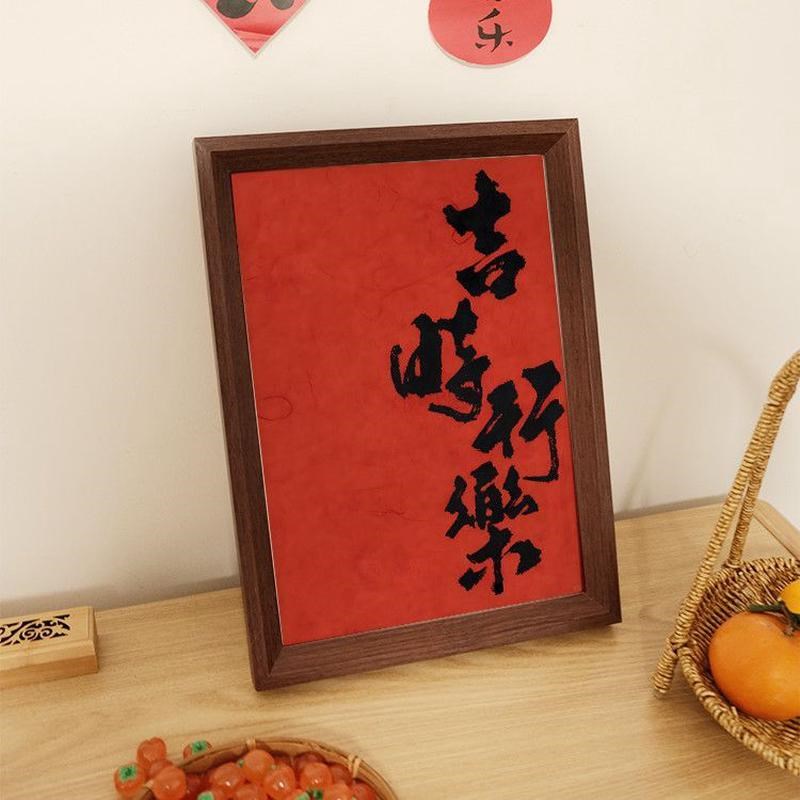 乐
吉時行樂